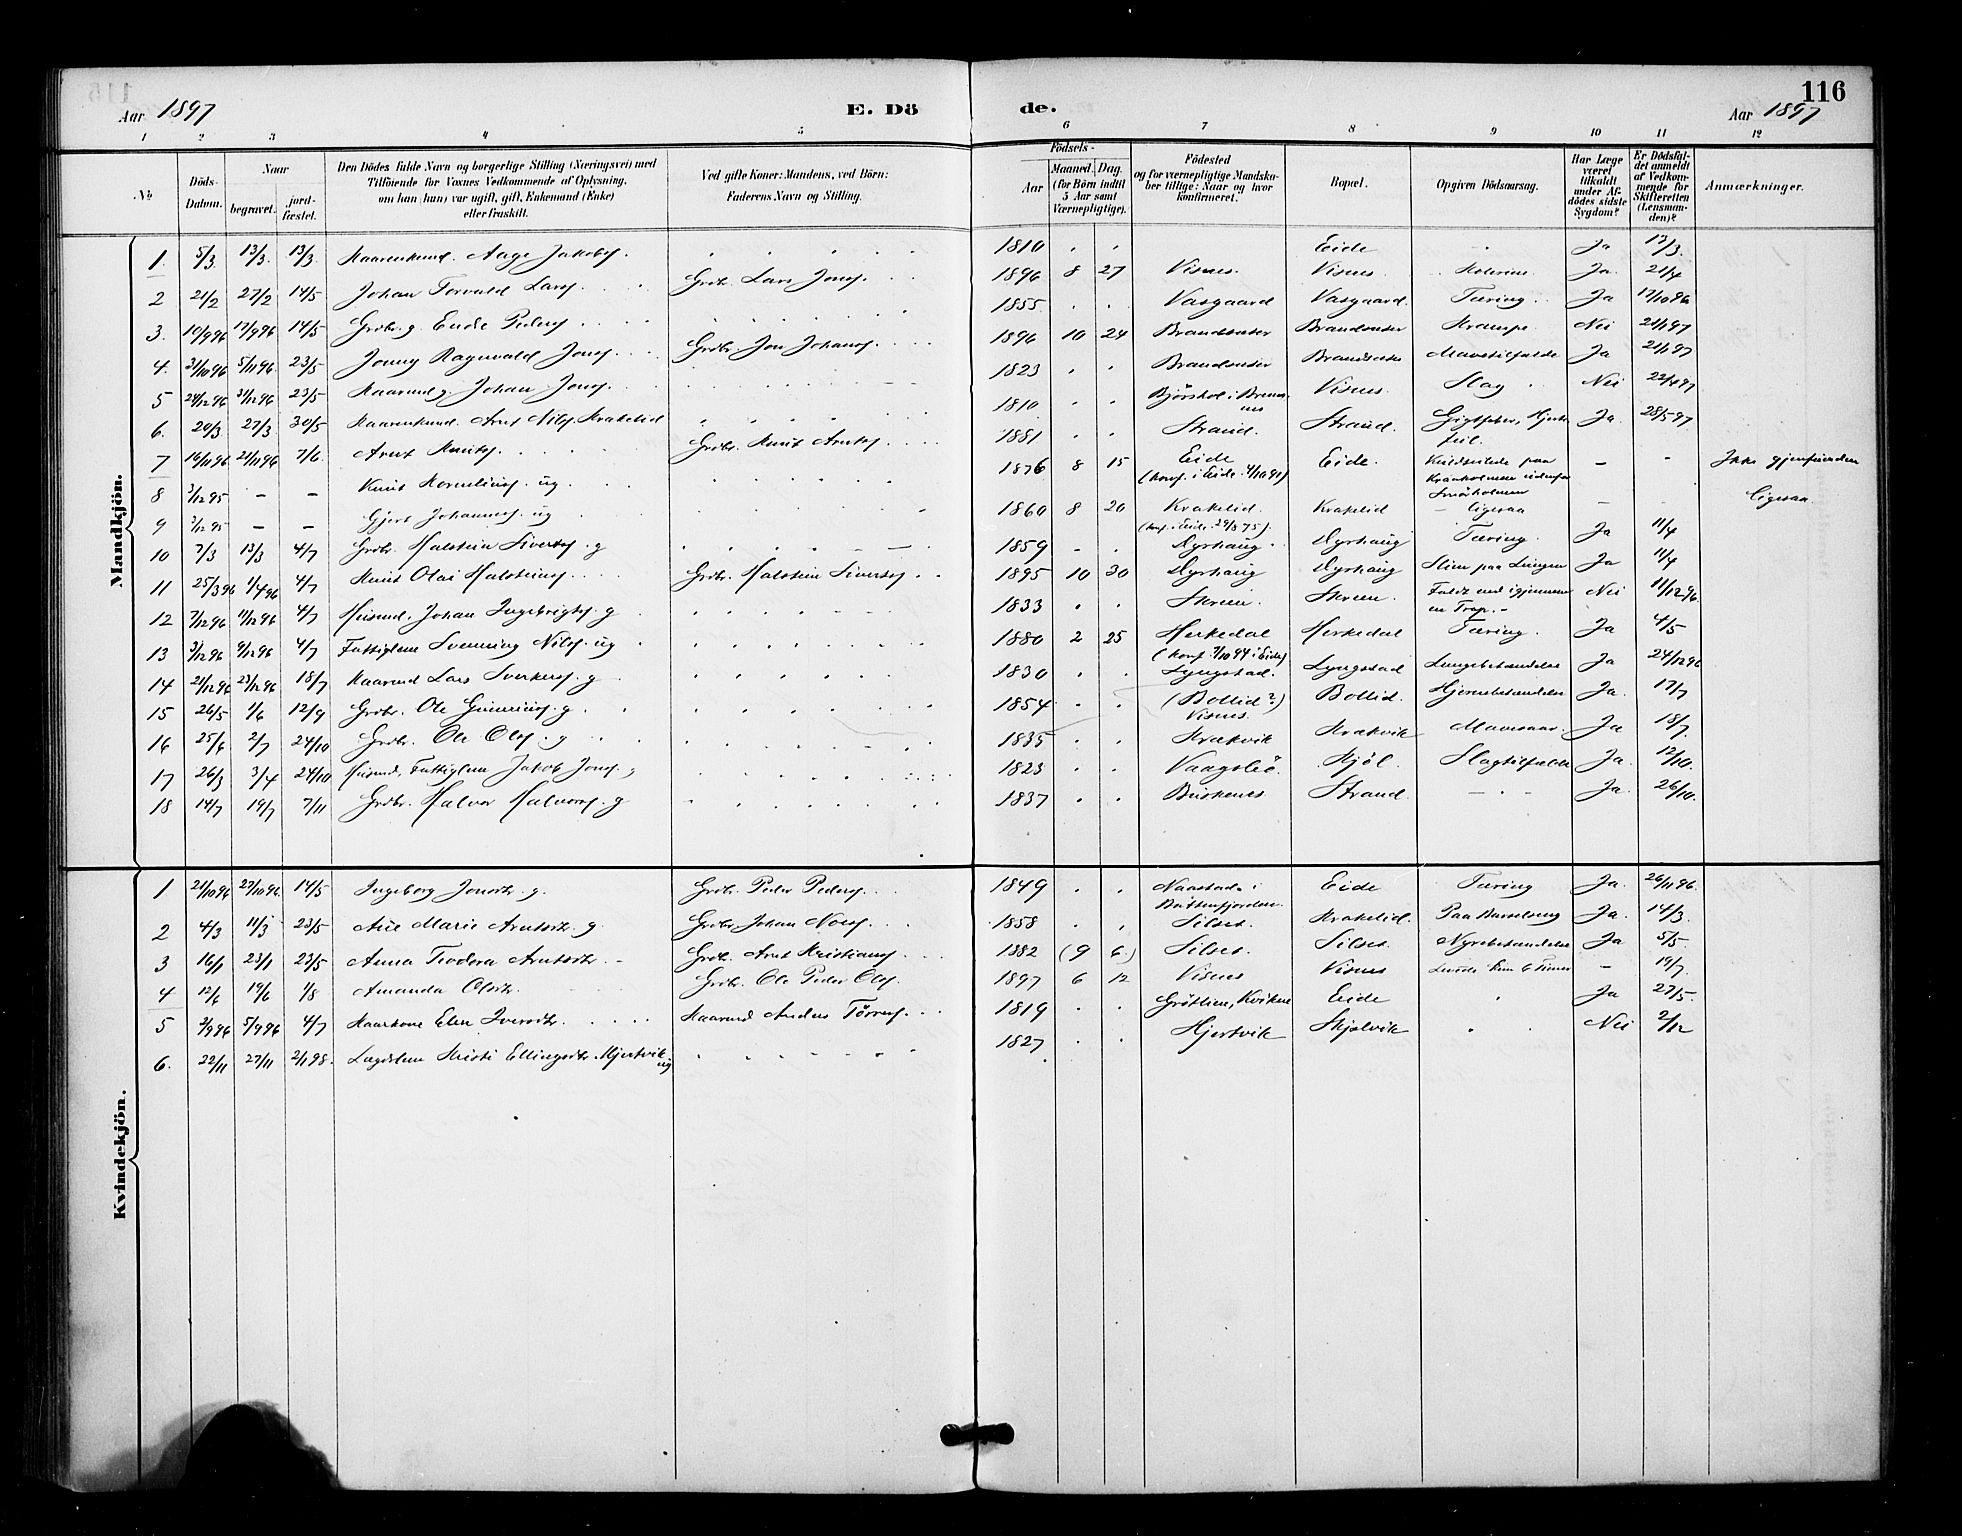 116
Aar 1897 E. Dö de. Aar 1897
1 2 3 4 5 6 7 8 9 10 11 12
No Döds-Datum. Naar begravet. jord-fæstet. Den Dödes fulde Navn og borgerlige Stilling (Næringsvei) med Tilföiende for Voxnes Vedkommende af Oplysning, om han (hun) var ugift, gift, Enkemand (Enke) eller fraskilt. Ved gifte Koner: Mandens, ved Börn: Faderens Navn og Stilling. Födsels- Aar Maaned. Dag. (for Börn indtil 5 Aar samt Værnepligtige). Födested og for værnepligtige Mandskaber tillige: Naar og hvor konfirmeret. Bopæl. Opgiven Dödsaarsag. Har Læge været tilkaldt under Afdödes sidste Sygdom? Er Dödsfaldet anmeldt af Vedkommende for Skifteretten (Lensmanden)? Anmærkninger.
Mandkjön.
1. 5/3 13/3 13/3 Kaarenkmd. Aage Jakobs. 1810 Eide Ja 17/3
2 21/2 27/2 14/5 Johan Torvald Lars. Grdbr. Lars Jons. 1896 8 27 Visnes. Visnes Ja. 21/4
3. 10/9 96 17/9 96 14/5 Grdbr. g. Ende Peders. 1855 Vasgaard Vasgaard. Tæring. Ja 17/10 96
4. 31/10 96 5/11 96. 23/5 Jonny Ragnvald Jons. Grdbr. Jon Johans. 1896 10 24 Brandsæter Brandsæter Krampe. Nei 21/1 97
5 24/12 96 31/12 96 23/5 Kaarmd g. Johan Jons. 1823 Brandsæter Brandsæter Mavetilfælde Ja 21/1 97
6. 20/3 27/3 30/5 Kaarenkmd. Arnt Nils. Krakelid 1810 Visnes. Slag Nei 22/4 97
7 16/11 96 21/11 96 7/6 Arnt Knuts. Grdbr. Knut Arnts. 1881 Strand. Strand. Gigtfeber, Hjertefeil. Ja. 28/5 97
8 3/12 95 – – Knut Kornelius. ug 1876 8 15 Eide (konf. i Eide 4/10 91) Eide. Kuldseilede paa Kraakholmen Smörholmen – – Ikke gjenfunden
9 3/12 95 – – Gjert Johannes. ug 1860 8 20 Krakelid. (konf. i Eide 29/8 75). Krakelid – ligesaa – Ligesaa.
10 7/3 13/3 4/7 Grdbr. Halstein Siverts. g 1859 Dyrhaug Dyrhaug Tæring. Ja 11/4
11 25/3 96 1/4 96 4/7 Knut Olai Halsteins. Grdbr. Halstein Siverts. 1895 10 30 Dyrhaug Dyrhaug Slim paa Lungen Ja 11/4
12 7/12 96 11/12 96 4/7 Husmd. Johan Ingebrigts. g 1833 Skreien. Skreien. Faldt ned igjennem en Trap. Nei 11/12 96.
13 3/12 96 9/12 96 4/7 Fattiglem Svenning Nils. ug 1880 2 25 Herkedal (konf. 7/10 94 i Eide) Herkedal Tæring. Ja 4/5
14 21/12 96 23/12 96 18/7 Kaarmd Lars Sverkers. g 1830 Lyngstad. Lyngstad Lungebetændelse Ja 24/12 96
15 26/5 1/6 12/9 Grdbr. Ole Gunnerius. g. 1854 (Bollid?) Visnes. Bollid. Hjernebetændelse Ja. 17/7
16 25/6 2/7 24/10 Grdbr. Ole Ols. g 1835 Krækvik Krækvik Mavesaar. Ja 18/7
17 26/3 3/4 24/10 Husmd, Fattiglem Jakob Jons. g 1823 Vaagsbö. Kjöl. Slagtilfælde Ja. 12/10.
18 14/7 19/7 7/11 Grdbr. Halvor Halvors. g 1837 Buskenes Strand. Ja. 26/10.
Kvindekjön.
1 21/10 96 27/10 96. 14/5 Ingeborg Jonsdtr. g. Grdbr. Peder Peders. 1849 Naastad i Battenfjorden. Eide Tæring Ja. 26/11 96.
2 4/3 11/3 23/5 Ane Marie Arntsdtr. g. Grdbr. Johan Nils. 1858 Silset. Krakelid. Paa Barselseng Ja. 14/3.
3 16/1 23/1 23/5 Anna Teodora Arntsdtr. – Grdbr. Arnt Kristians. 1882 (9 6.) Silset. Silset. Nyrebetændelse Ja 5/5
4 12/6 19/6 1/8 Amanda Olsdtr. Grdbr. Ole Peder Ols. 1897 6 12 Visnes Visnes Levede kun 6 Timer – 19/7.
5 2/9 96 5/9 96 4/7 Kaarkone Elen Iversdtr. Kaarmd Anders Törres. 1819 Gröttem, Kvikne Eide Ja 27/5.
6. 22/11 27/11 2/1 98. Lægdslem Kristi Ellingsdtr Hjertvik ug 1827 Hjertvik Skjelvik Nei 2/12